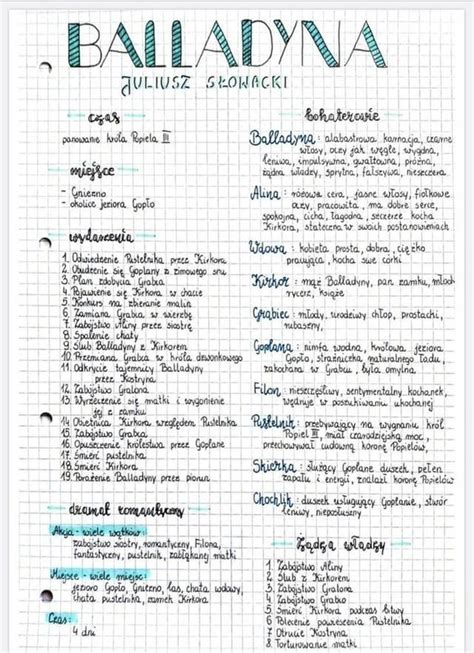 BALLADYNA
JULIUSZ SŁOWACKI
czas
panowanie króla Popiela III
miejsce
- Gniezno
- okolice jeziora Gopło
wydarzenia
1. Odwiedzenie Pustelnika przez Kirkora
2. Obudzenie się Goplany z zimowego snu
3. Plan zdobycia Grabca
4. Pojawienie się Kirkora w chacie
5. Konkurs na zbieranie malin
6. Zamiana Grabca w wierzbę
7. Zabójstwo Aliny przez siostrę
8. Spalenie chaty
9. Ślub Balladyny z Kirkorem
10. Przemiana Grabca w króla dzwonkowego
11. Odkrycie tajemnicy Balladyny
przez Kostryna
12. Zabójstwo Gralona
13. Wyrzeczenie się matki i wygonienie
jej z zamku
14. Obietnica Kirkora względem Pustelnika
15. Zabójstwo Grabca
16. Opuszczenie królestwa przez Goplanę
17. Śmierć pustelnika
18. Śmierć Kirkora
19. Porażenie Balladyny przez piorun
dramat romantyczny
Akcja - wiele wątków:
zabójstwo siostry, romantyczny, Filona,
fantastyczny, pustelnik, zabłąkanej matki
Miejsce - wiele miejsc:
jezioro Gopło, Gniezno, las, chata wdowy,
chata pustelnika, zamek Kirkora
Czas:
4 dni
bohaterowie
Balladyna: alabastrowa karnacja, czarne
włosy, oczy jak węgle, wygodna,
leniwa, impulsywna, gwałtowna, próżna,
żądna władzy, sprytna, fałszywa, nieszczera
Alina: różowa cera, jasne włosy, fiołkowe
oczy, pracowita, ma dobre serce,
spokojna, cicha, łagodna, szczerze kocha
Kirkora, stateczna w swoich postanowieniach
Wdowa: kobieta prosta, dobra, ciężko
pracująca, kocha swe córki
Kirkor: mąż Balladyny, pan zamku, młody
rycerz, książę
Grabiec: młody, urodziwy chłop, prostacki,
rubaszny,
Goplana: nimfa wodna, królowa jeziora
Gopło, strażniczka naturalnego ładu,
zakochana w Grabcu, była omylna
Filon: nieszczęśliwy, sentymentalny kochanek,
wędruje w poszukiwaniu ukochanej
Pustelnik: przebywający na wygnaniu król
Popiel III, miał czarodziejską moc,
przechowywał cudowną koronę Popielów,
Skierka: służący Goplanie duszek, pełen
zapału i energii, znalazł koronę Popielów
Chochlik: duszek usługujący Goplanie, stwór
leniwy, nieposłuszny
żądza władzy
1. Zabójstwo Aliny
2. Ślub z Kirkorem
3. Zabójstwo Gralona
4. Zabójstwo Grabca
5. Śmierć Kirkora podczas bitwy
6. Polecenie powieszenia Pustelnika
7. Otrucie Kostryna
8. Torturowanie matki